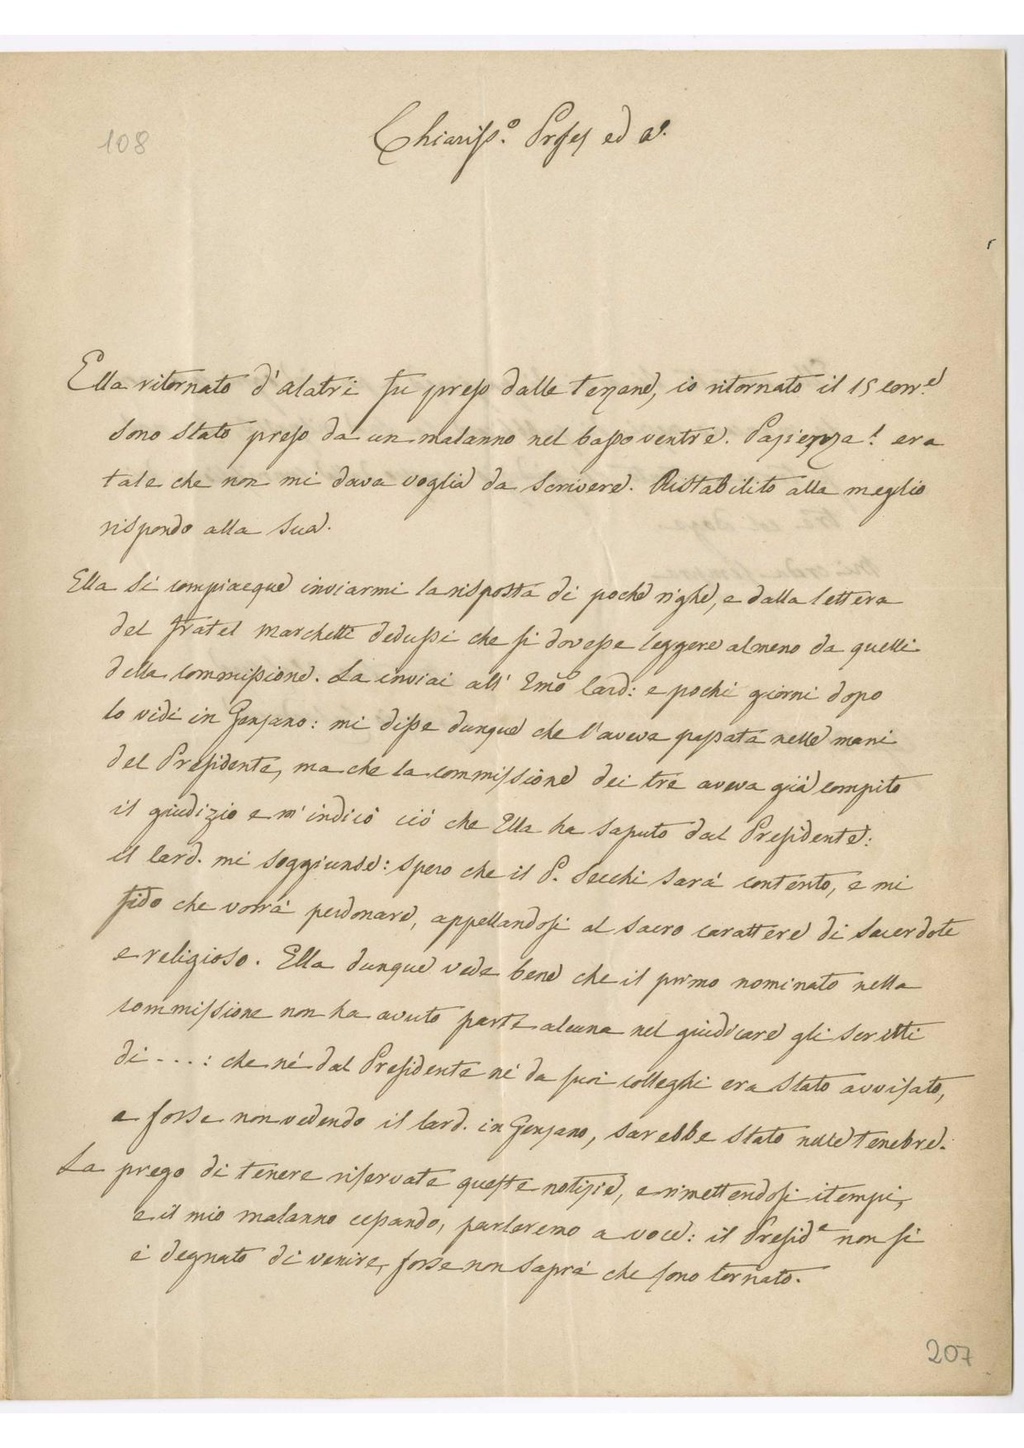 108
Chiariss.o Profes ed a.o
Ella ritornato d'alatri fu preso dalle terzane, io ritornato il 15 corr.e
sono stato preso da un malanno nel basso ventre. Pasienza! era
tale che non mi dava voglia da scrivere. Ristabilito alla meglio
rispondo alla sua.
Ella si compiacque inviarmi la risposta di poche righe, e dalla lettera
del fratel Marchetti dedussi che si dovesse leggere almeno da quelli
della commissione. La inviai all' Emo Card: e pochi giorni dopo
lo vidi in Genzano: mi disse dunque che l'aveva passata nelle mani
del Presidente, ma che la commissione dei tre aveva già compito
il giudizio e m'indicò ciò che Ella ha saputo dal Presidente:
il Card. mi soggiunse: spero che il P. Secchi sarà contento, e mi
fido che vorrà perdonare, appellandosi al sacro carattere di sacerdote
e religioso. Ella dunque vede bene che il primo nominato nella
commissione non ha avuto parte alcuna nel giudicare gli scritti
di - . . . : che né dal Presidente né da suoi colleghi era stato avvisato,
e forse non vedendo il Card. in Genzano, sarebbe stato nelle tenebre.
La prego di tenere riservate queste notizie, e rimettendosi i tempi,
e il mio malanno cessando, parleremo a voce: il Presid.e non si
è degnato di venire, forse non saprà che sono tornato.
207